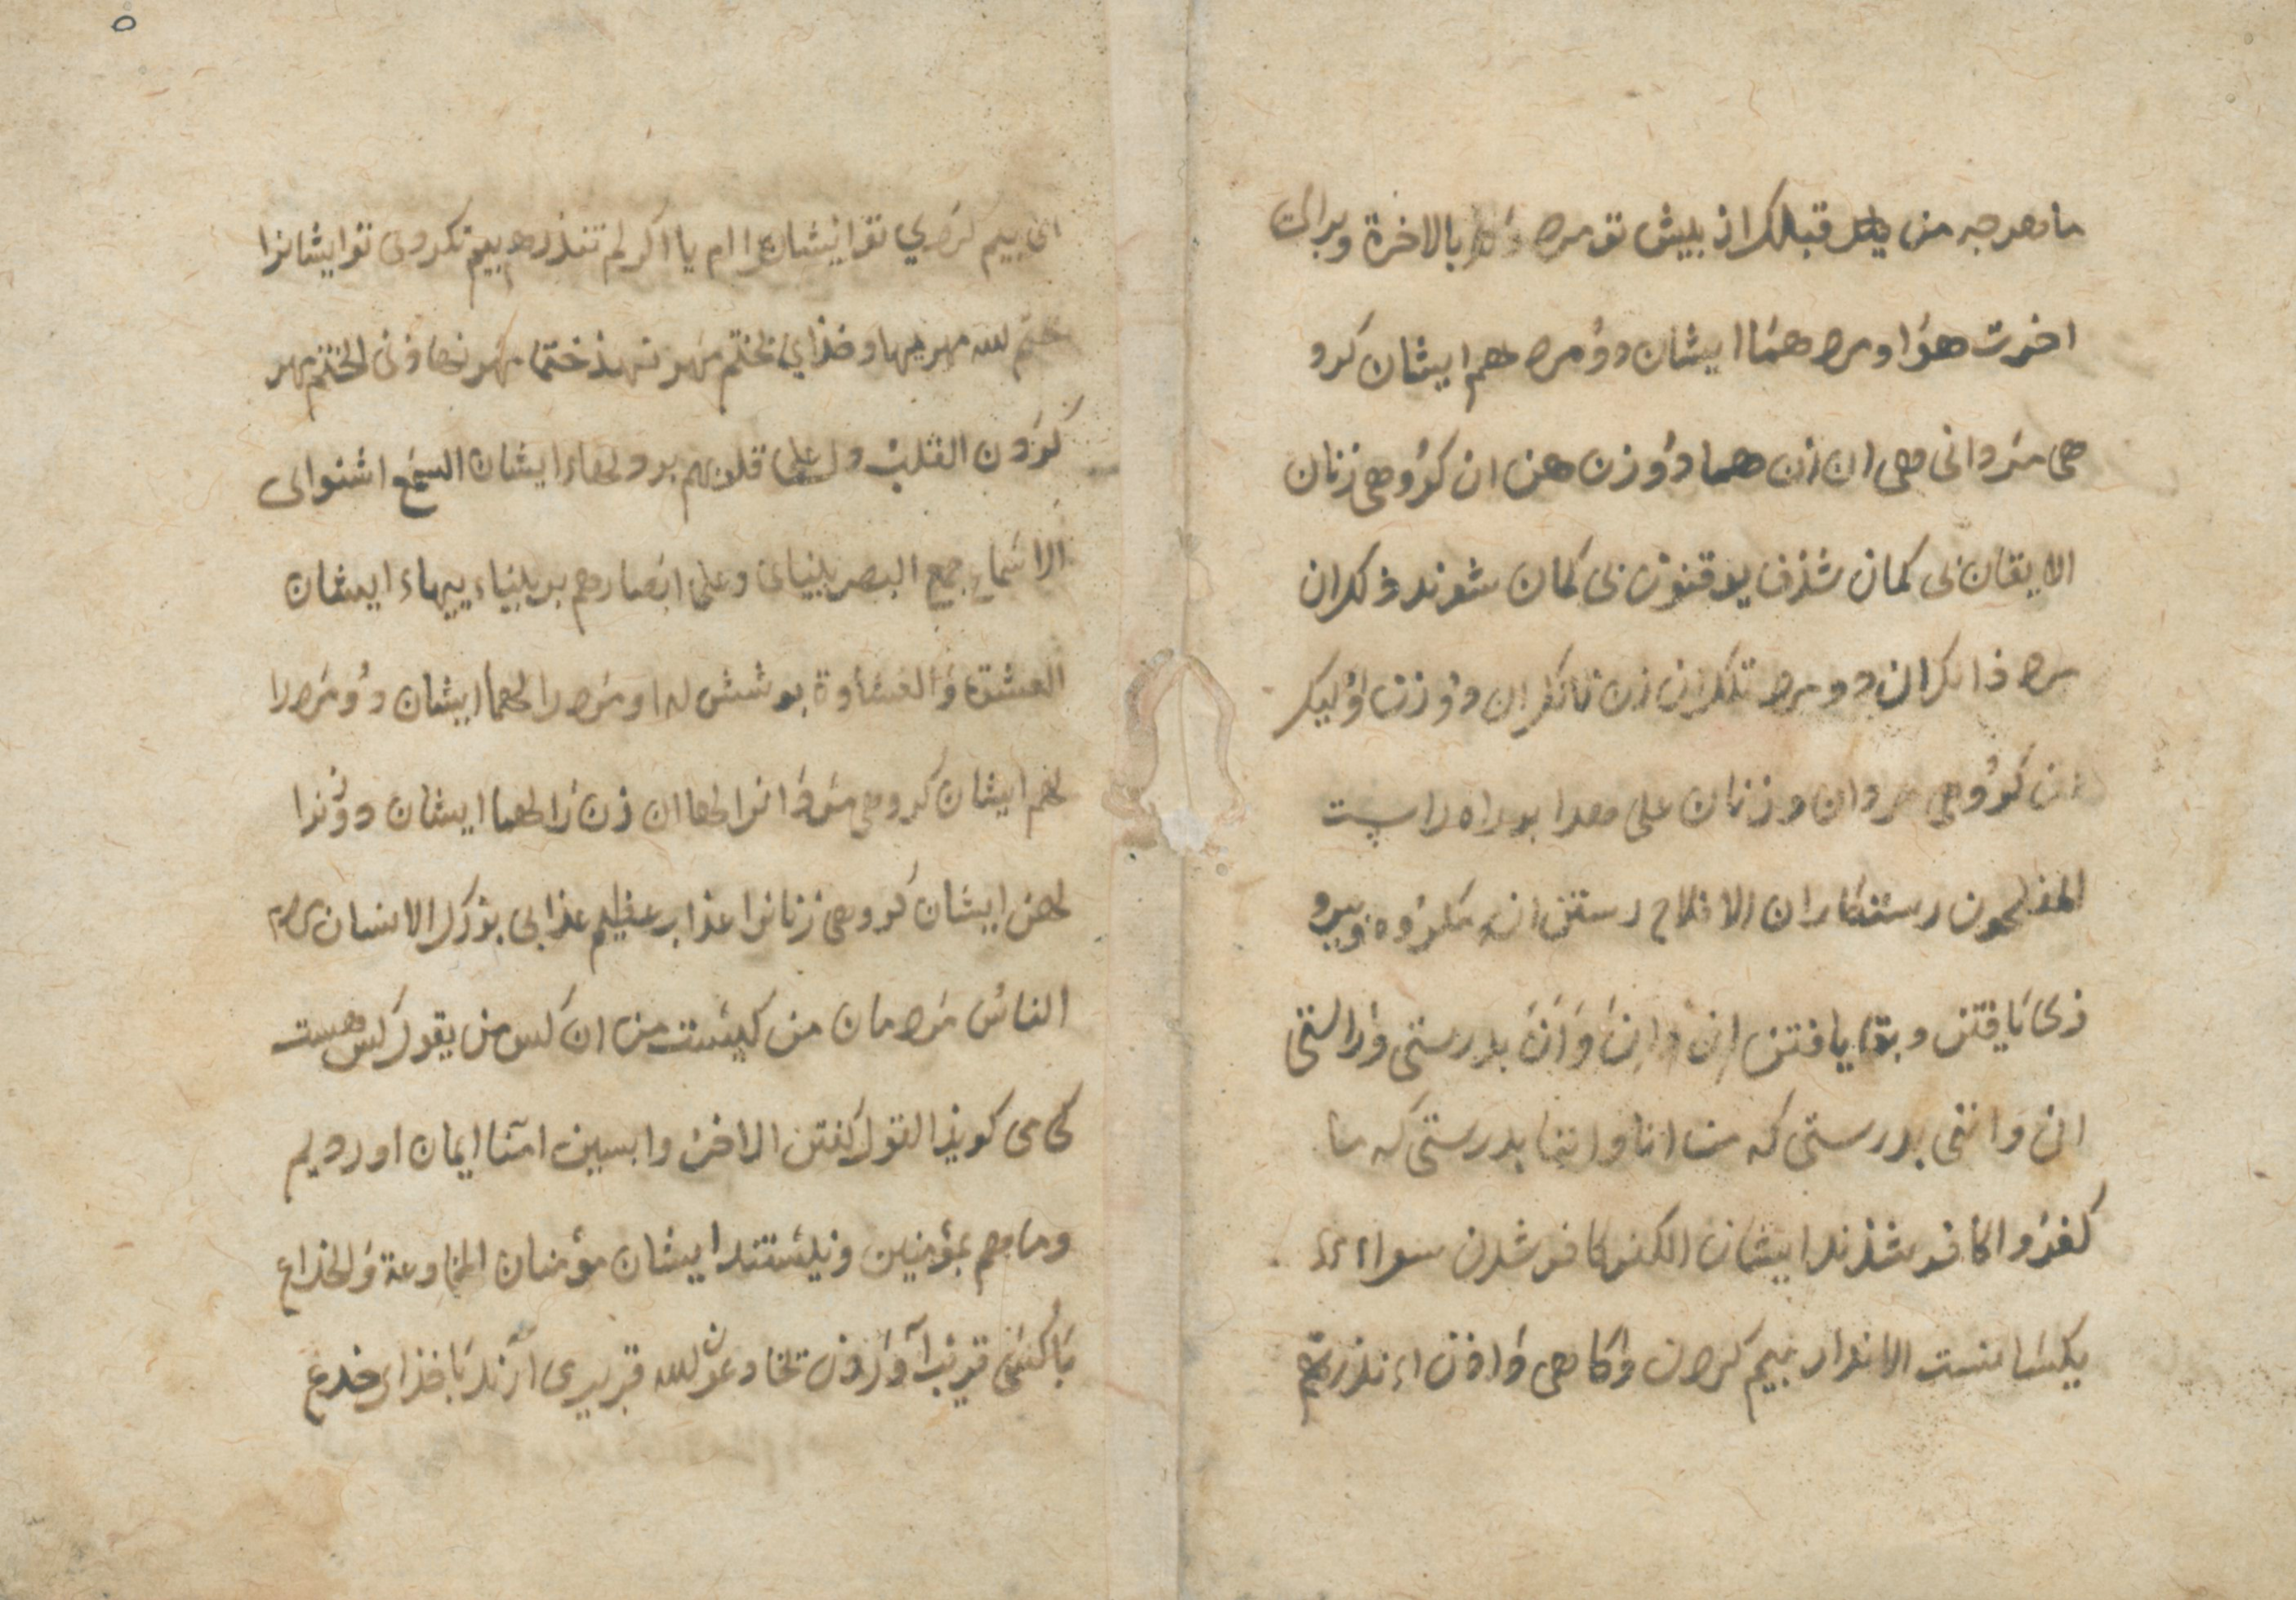 ما هرجه من قبلک از بیش تو مرد بالاخرة وبران
اخرت هوا و مرد هما ایشان دو مرد هم ایشان کرو
هی مردانی هی ان زن هما دو زن هن ان کروهی زنان
الایقان بی کمان شذن یوقنون بی کمان شوند ذلکران
مرد ذانکران دو مرد تلکران زن تانکران دو زن اولیکر
ان کروهی مردان و زنان علی هدا بر راه راست
المفلحون رستکاران الافلاح رستن از مکروه وبیرو
زی یافتن وبقا یافتن ان وان وان بدرستی وراستی
انی واننی بدرستی که من انا واننا بدرستی که ما
کفروا کافر شذند ایشان الکفر کافر شدن سواء
یکسانست الانذار بیم کردن واکاهی داذن اانذرتهم
ای بیم کردی تو ایشانرا ام یا اکر لم تنذرهم بیم نکردی تو ایشانرا
ختم الله مهر نهاد خذای یختم مهر نهذ ختما مهر نهاذنی الختم مهر
کردن القلب دل علی قلوبهم بر دلهاء ایشان السمع اشنوای
الاسماع جمع البصر بینای وعلی ابصارهم بر بینایيهاء ایشان
العشق والغشاوة بوشش له او مرد را لهما ایشان دو مرد را
لهم ایشان کروهی مردانرا لها ان زن را لهما ایشان دو زنرا
لهن ایشان کروهی زنانرا عذاب عظیم عذابی بزرک الانسان مردم
الناس مردمان من کیست من ان کس من یقول کس هست
کی می کویذ القول کفتن الاخر وابسین امنا ایمان اوردیم
وما هم بمؤمنین ونیستند ایشان مؤمنان المخادعة والخداع
با کسی فریب آوردن یخادعون الله فریب می ارند با خذای خدع